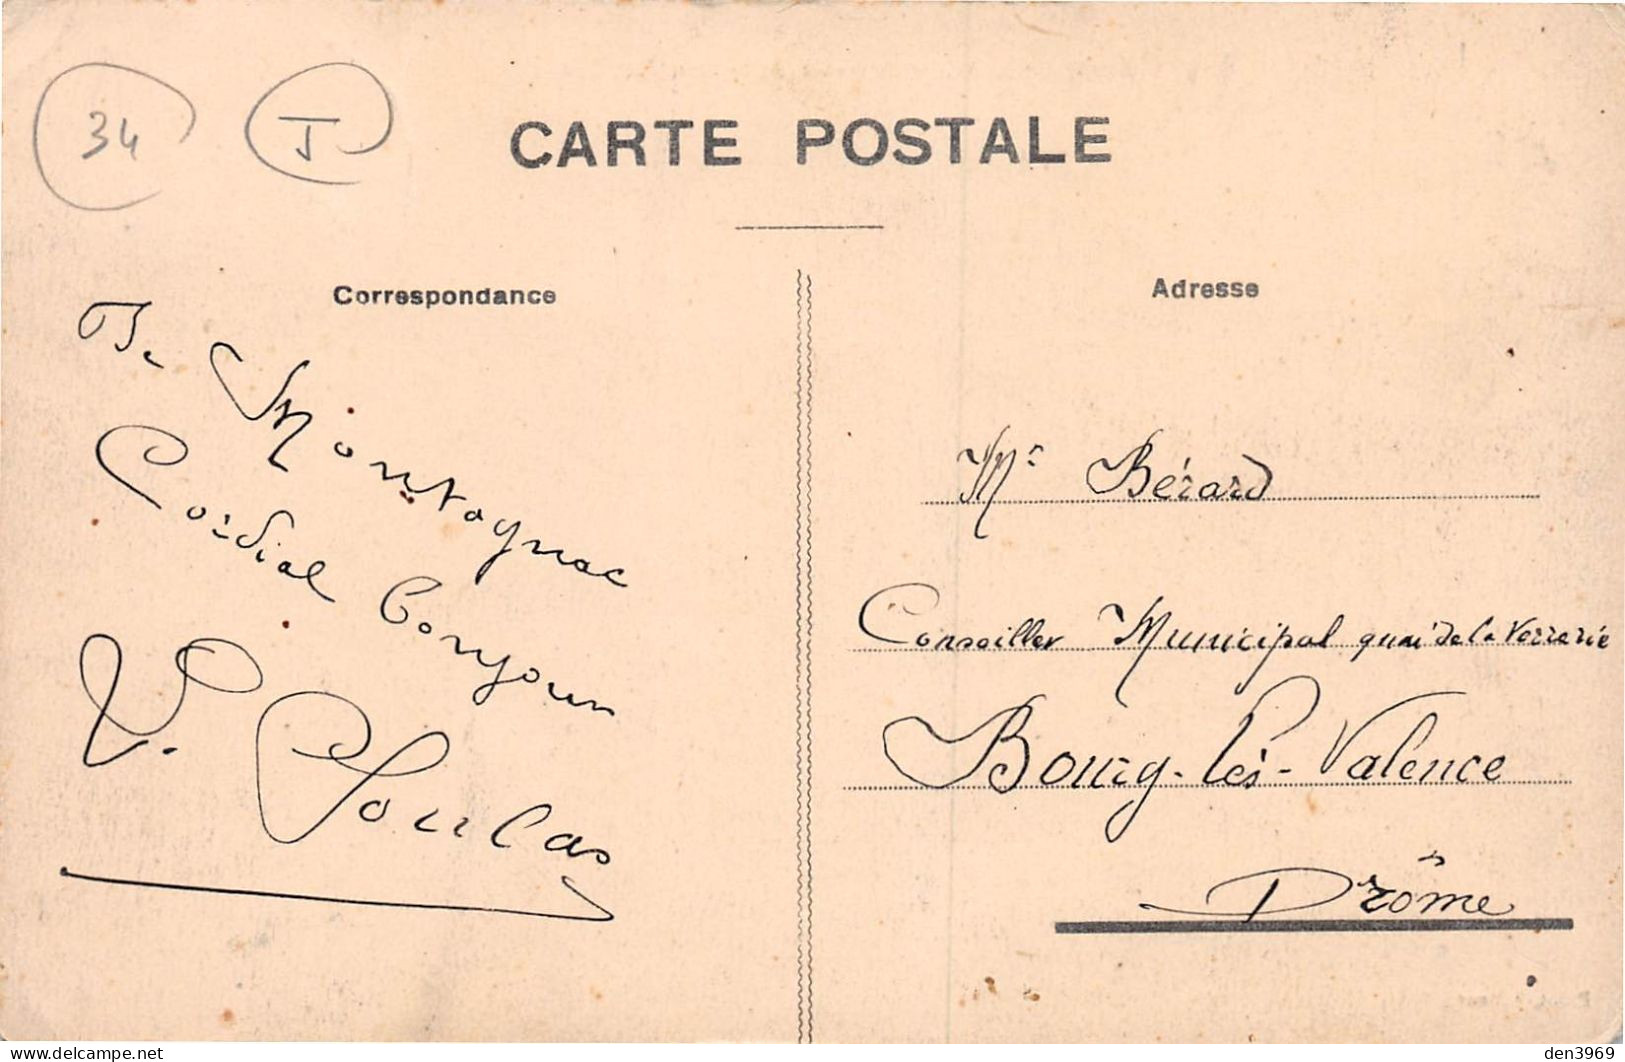 34 J
CARTE POSTALE
Correspondance
De Montagnac
Cordial bonjour
V. Soulas
Adresse
Mr Bérard
Conseiller Municipal quai de la Verrerie
Bourg-lès-Valence
Drôme
delcampe.net
den3969